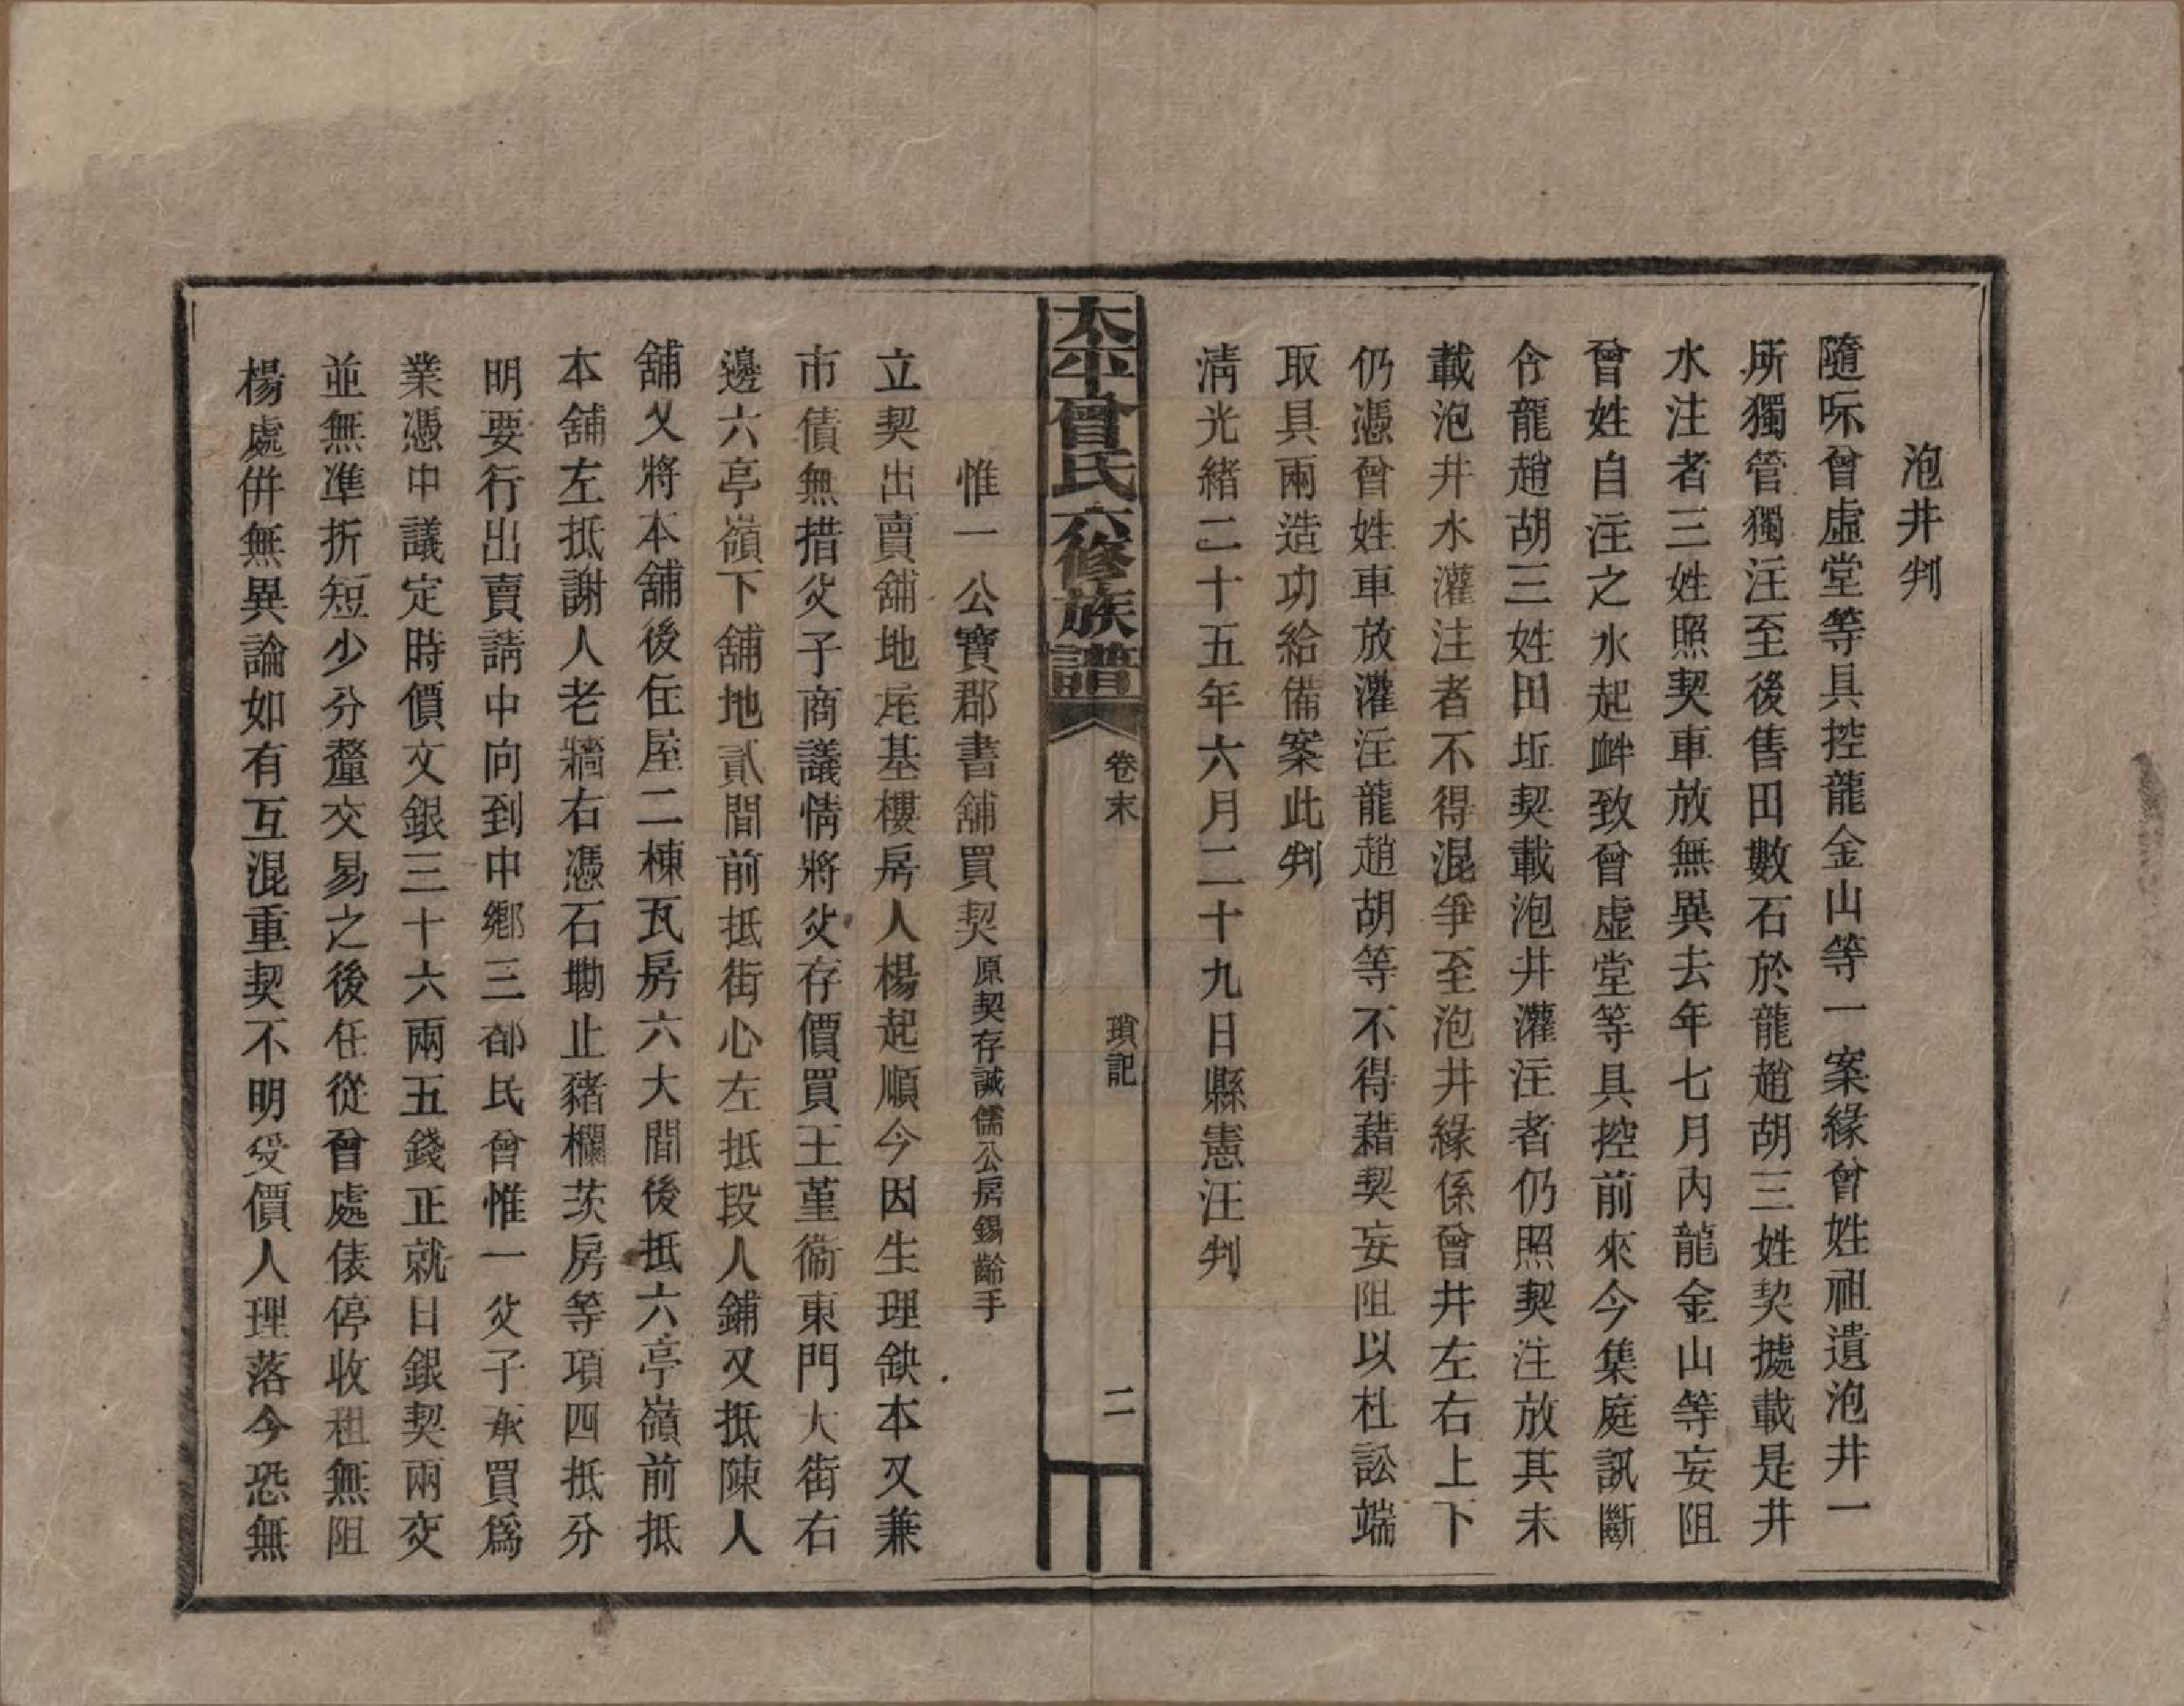 泡井判
隨呩曾虛堂等具控龍金山等一案緣曾姓祖遺泡井一
所獨管獨注至後售田數石於龍趙胡三姓契據載是井
水注者三姓照契車放無異去年七月內龍金山等妄阻
曾姓自注之水起衅致曾虛堂等具控前來今集庭訊斷
令龍趙胡三姓田坵契載泡井灌注者仍照契注放其未
載泡井水灌注者不得混爭至泡井緣係曾井左右上下
仍憑曾姓車放灌注龍趙胡等不得藉契妄阻以杜訟端
取具兩造功給備案此判
淸光緒二十五年六月二十九日縣憲汪判
太平曾氏六修族譜 卷末 瑣記 二
惟一公寶郡書舖買契原契存誠儒公房錫齡手
立契出賣舖地屋基樓房人楊起順今因生理缺本又兼
市債無措父子商議情將父存價買王堇衕東門大街右
邊六亭嶺下舖地貳間前抵街心左抵段人鋪又抵陳人
舖又將本舖後住屋二棟瓦房六大間後抵六亭嶺前抵
本舖左抵謝人老牆右憑石墈止豬欄茨房等項四抵分
明要行出賣請中向到中鄉三都民曾惟一父子承買爲
業憑中議定時價文銀三十六兩五錢正就日銀契兩交
並無準折短少分釐交易之後任從曾處俵停收租無阻
楊處併無異論如有互混重契不明受價人理落今恐無